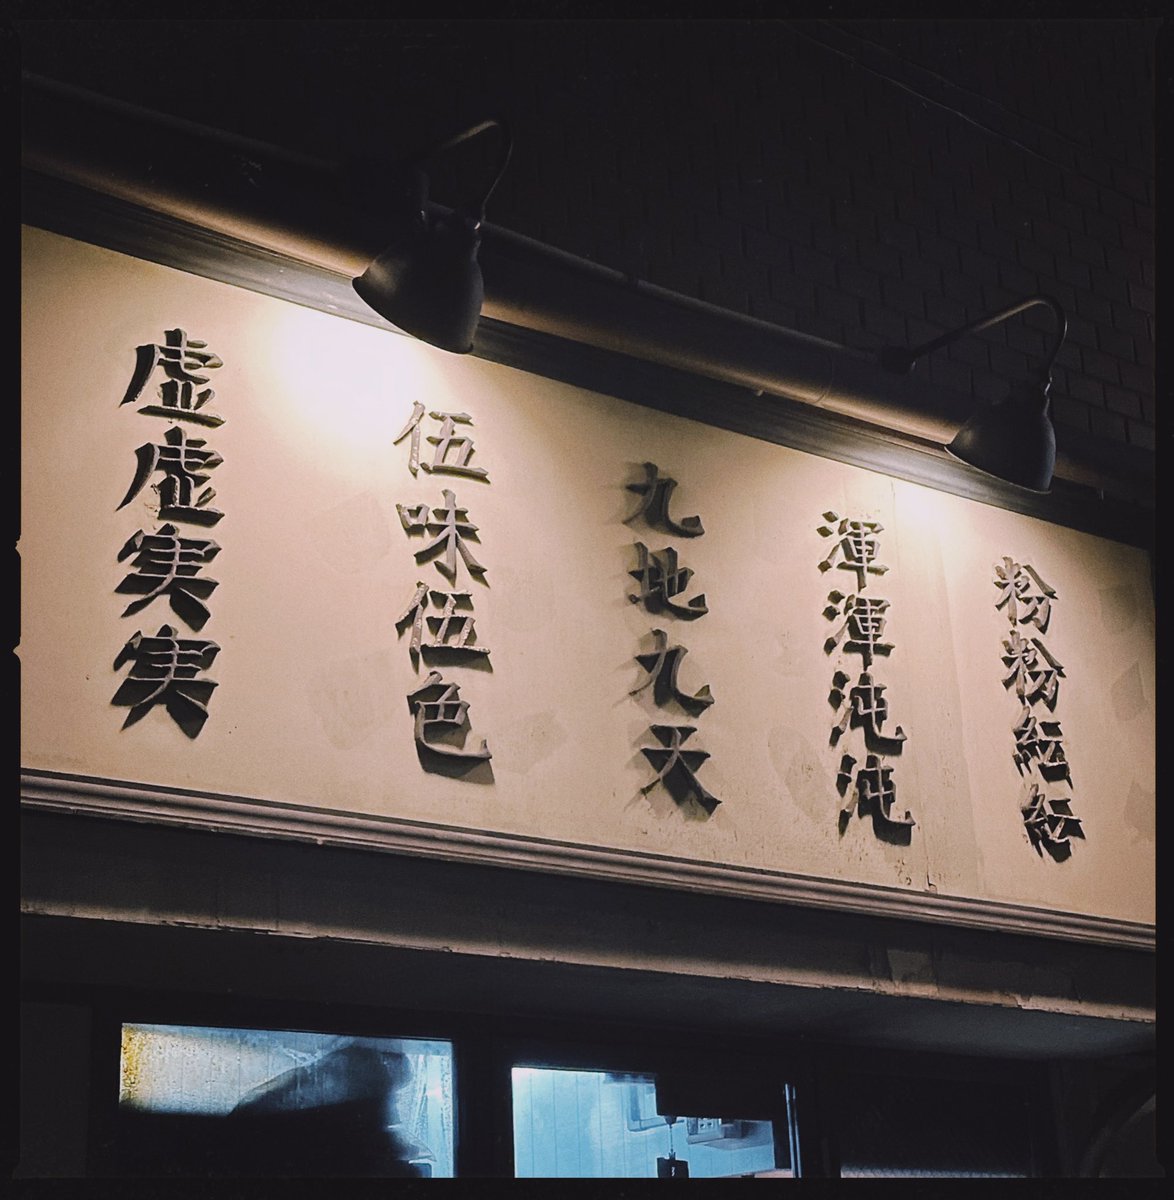 粉粉紜紜
渾渾沌沌
九地九天
伍味伍色
虚虚実実